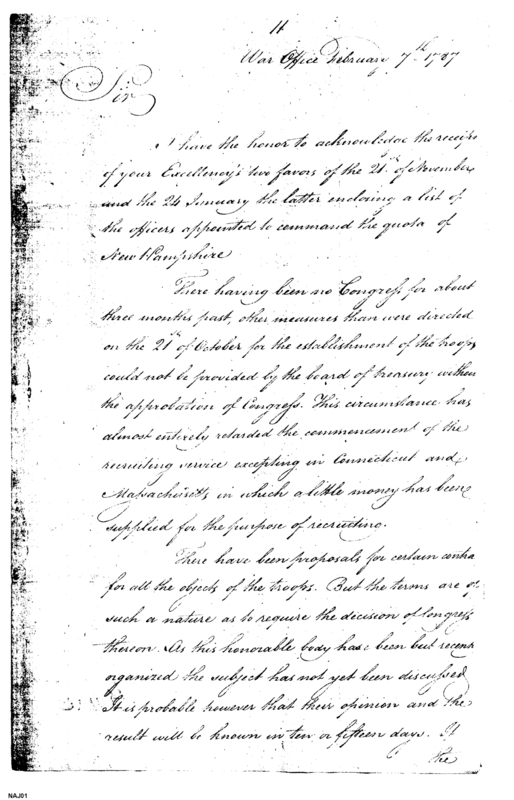 11
War Office February 7th 1787
Sir
I have the honor to acknowledge the receipt
of your Excellency's two favors of the 21st of November
and the 24 January the latter enclosing a list of
the officers appointed to command the quota of
New Hampshire
There having been no Congress for about
three months past, other measures than were directed
on the 21st of October for the establishment of the troops
could not be provided by the board of treasury withou
the approbation of Congress. This circumstance has
almost entirely retarded the commencement of the
recruiting service excepting in Connecticut and
Massachusetts in which a little money has been
supplied for the purpose of recruiting.
There have been proposals for certain contra
for all the objects of the troops. But the terms are of
such a nature as to require the decision of Congress
thereon. As this honorable body has been but recent
organized the subject has not yet been discussed
It is probable however that their opinion and the
result will be known in ten or fifteen days. If
the
NAJ01